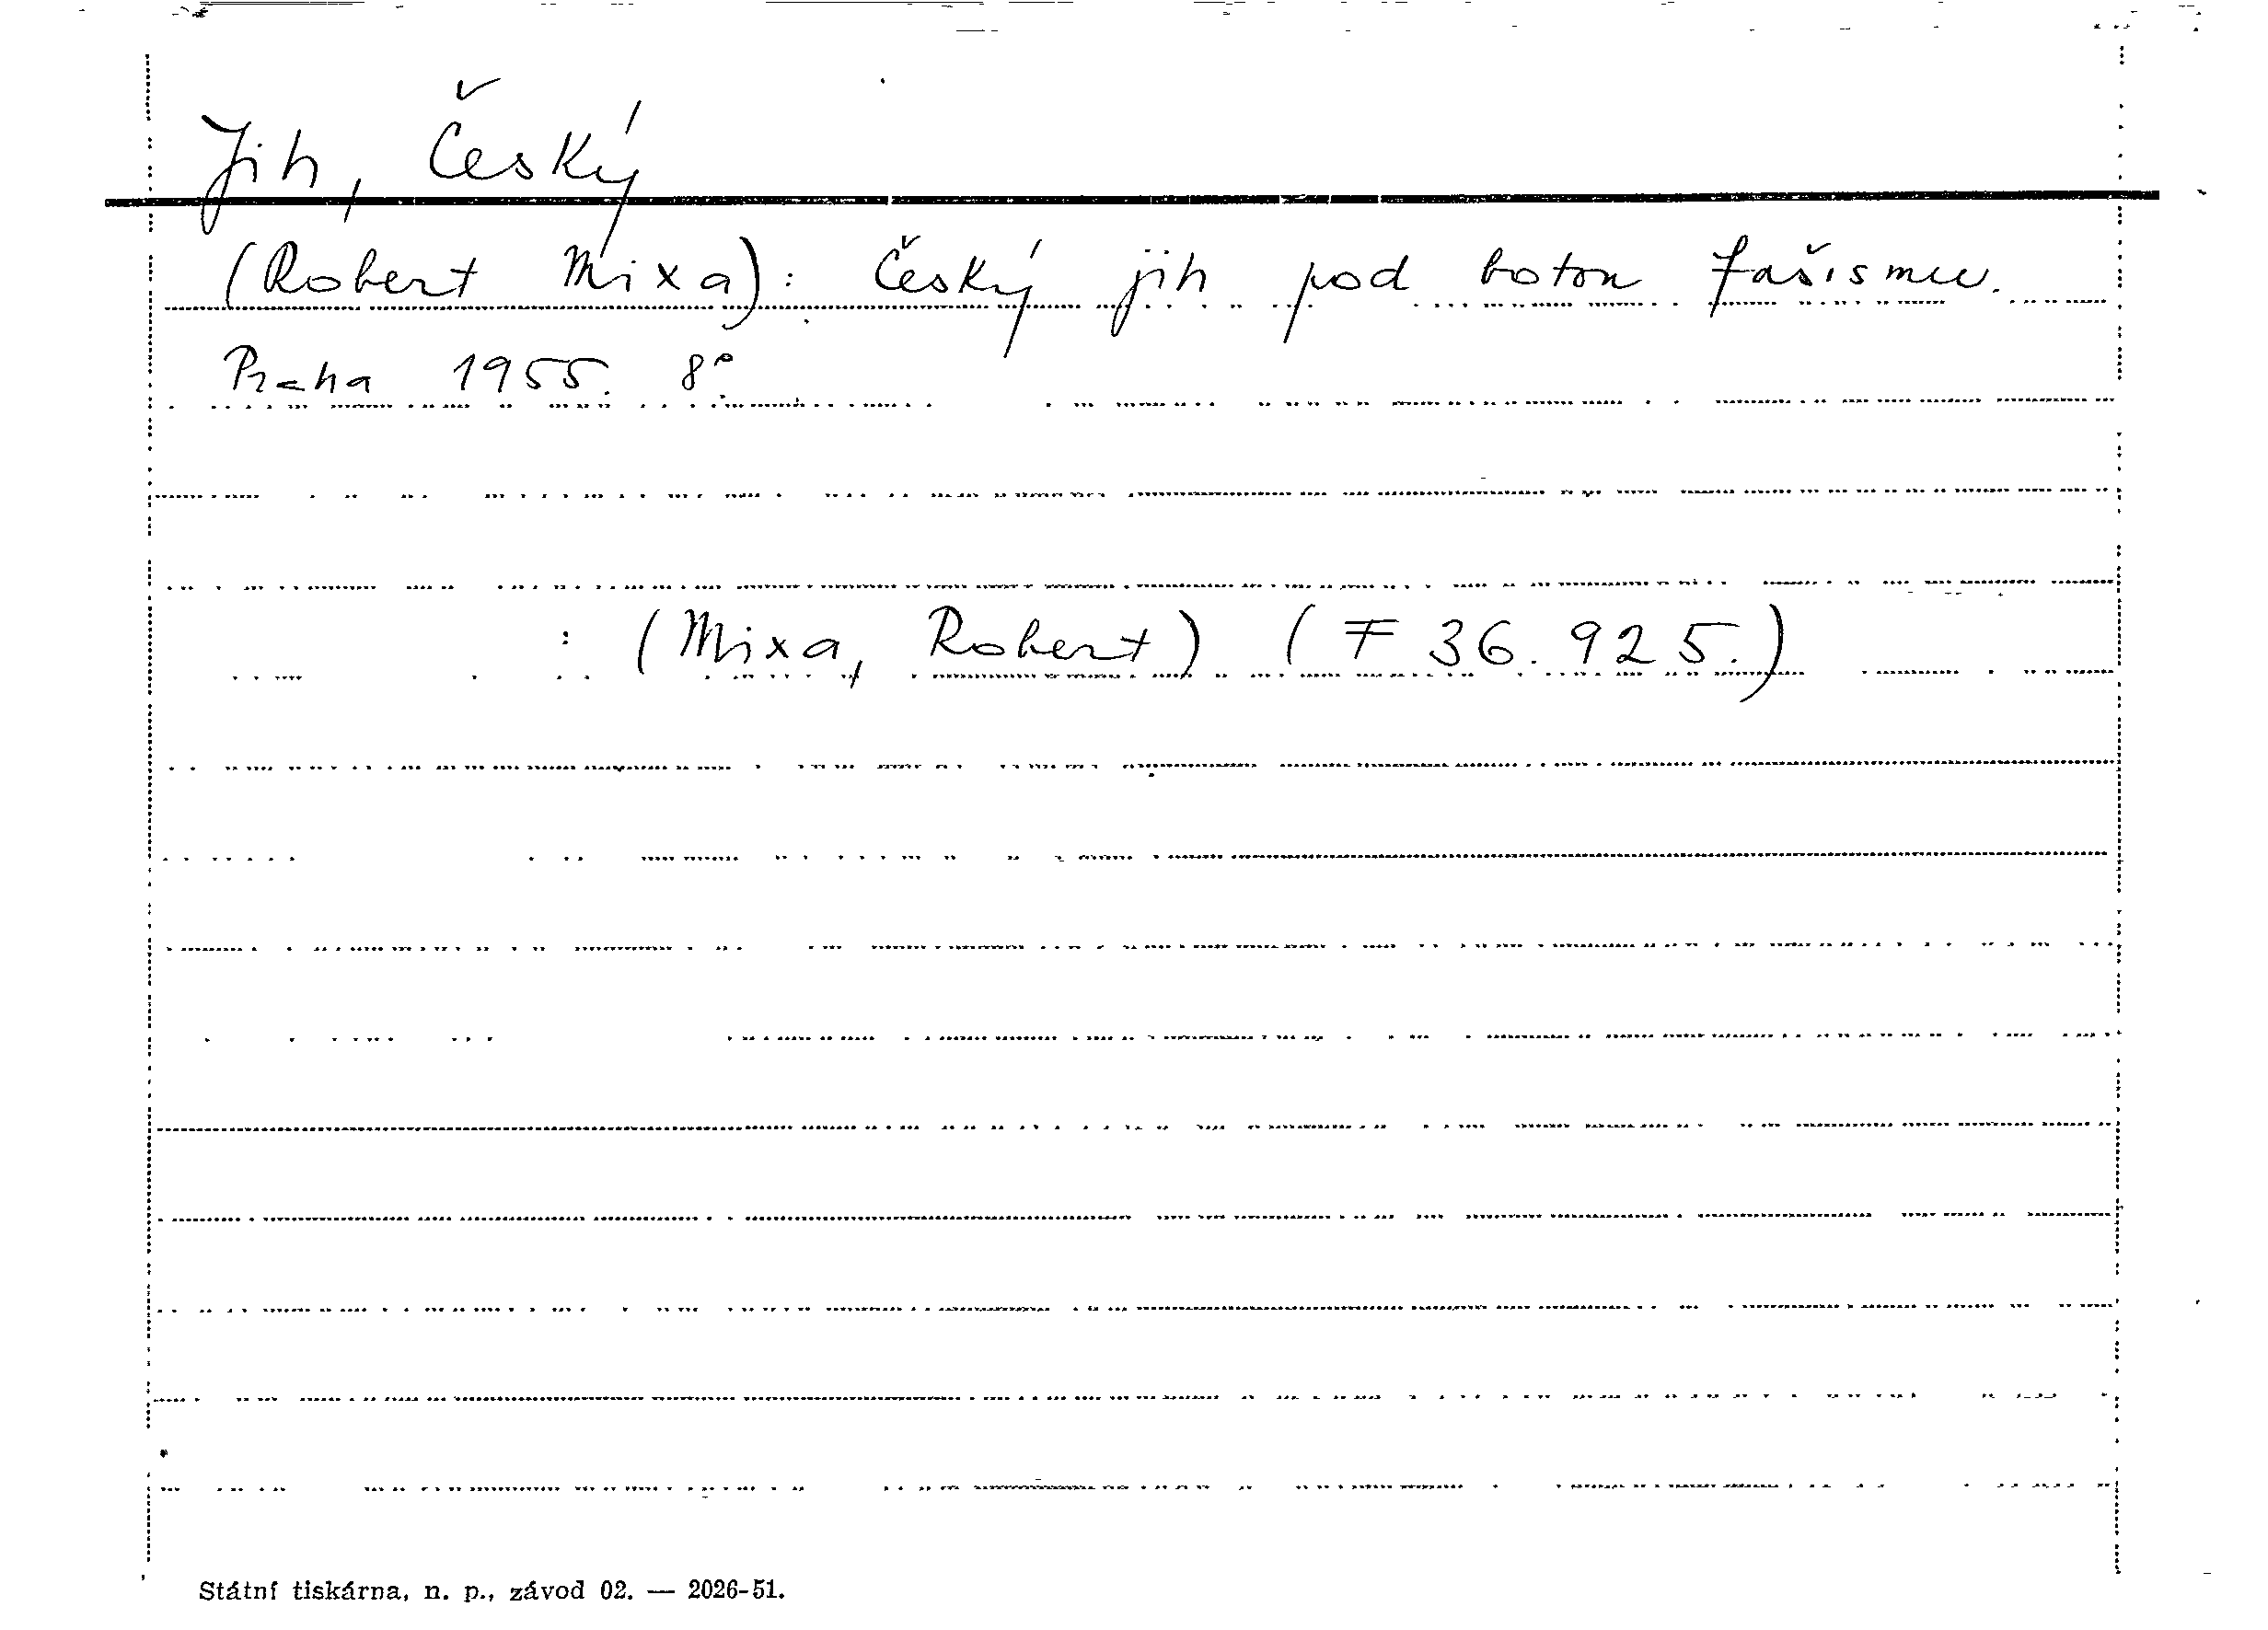 Jih, Český
(Robert Mixa): Český jih pod botou fašismu.
Praha 1955. 8°
: (Mixa, Robert) (F 36.925.)
Státní tiskárna, n. p., závod 02. — 2026-51.